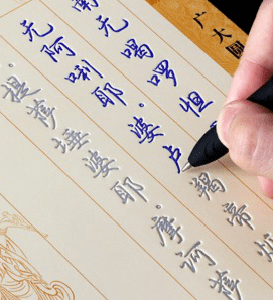 广大
南无喝啰怛
无阿唎耶·婆卢羯帝烁
提萨埵婆耶·摩诃萨